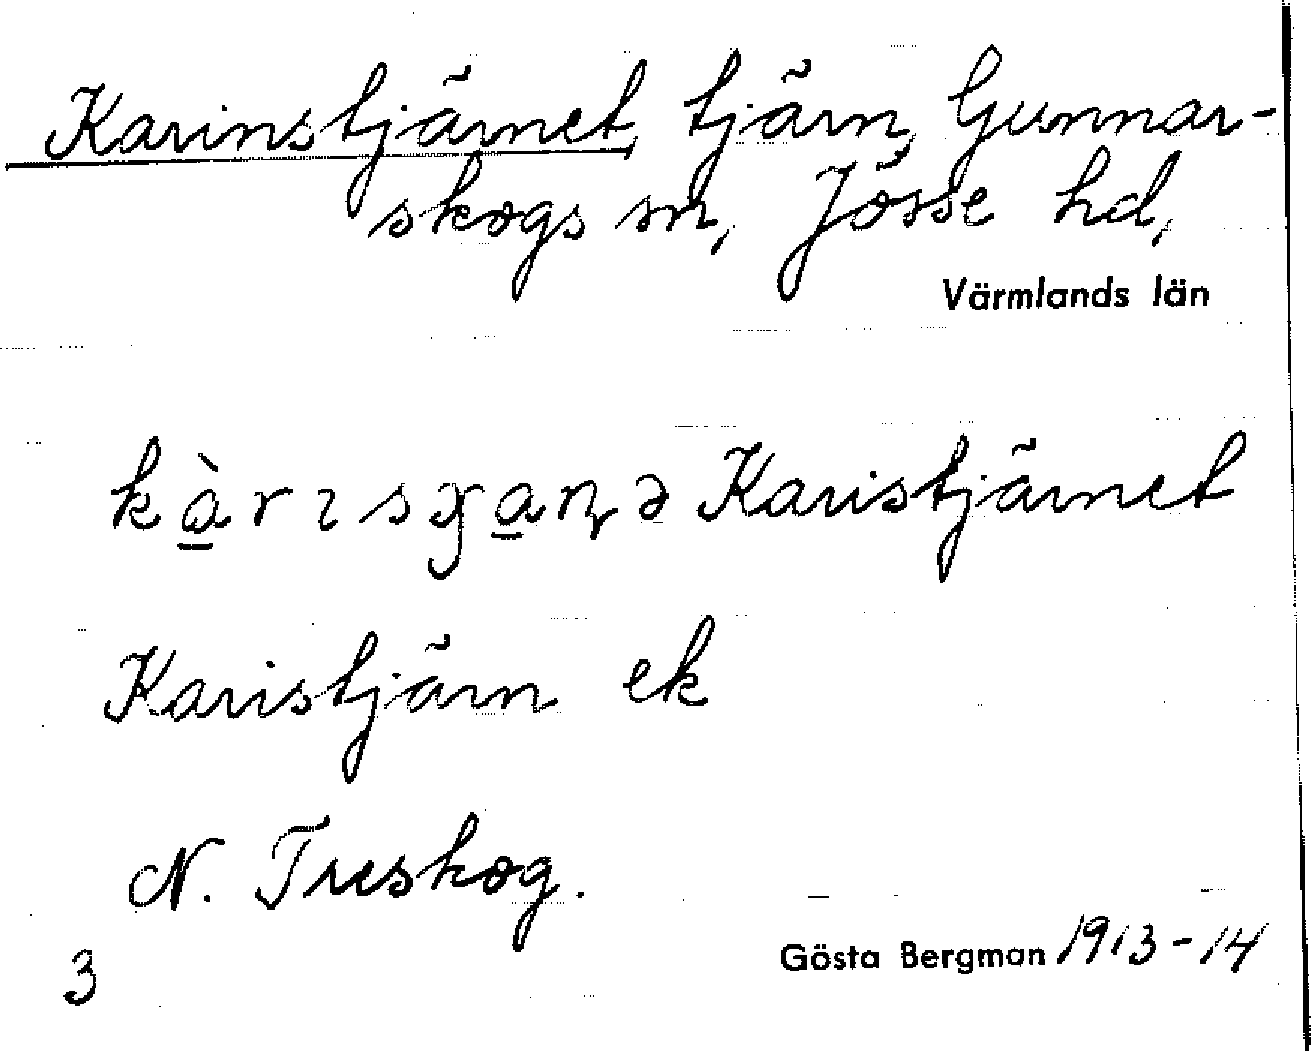 Karinstjärnet, tjärn, Gunnar-
skogs sn, Jösse hd,
Värmlands län
kàrɩsɣaɳə Karistjärnet
Karistjärn ek
N. Treskog.
3
Gösta Bergman 1913-14